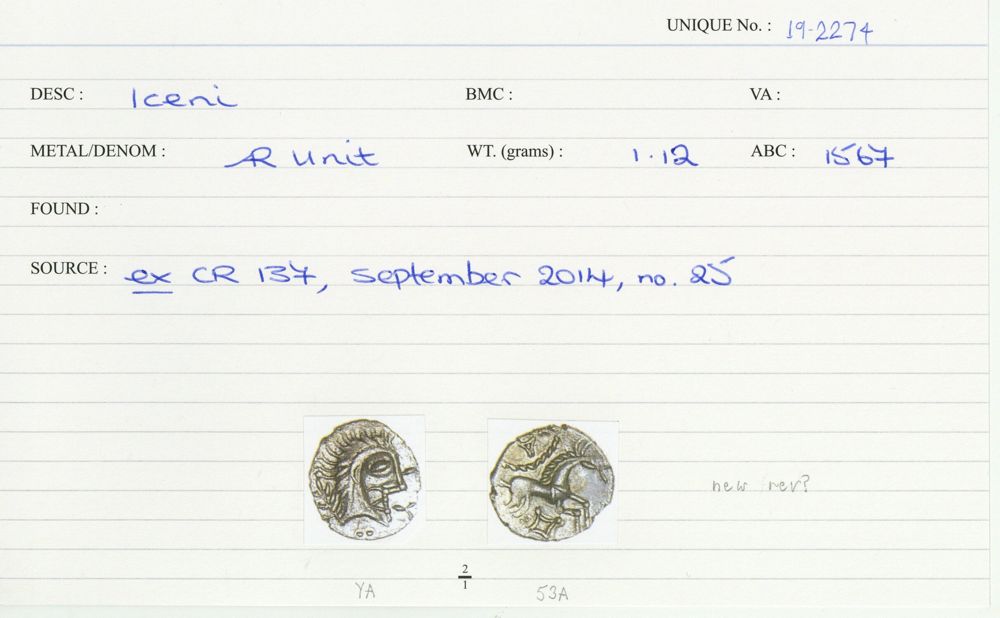 UNIQUE No. : 19-2274
DESC : Iceni BMC : VA :
METAL/DENOM : AR Unit WT. (grams) : 1.12 ABC : 1567
FOUND :
SOURCE : ex CR 137, September 2014, no. 25
new rev?
2
1
YA 53A